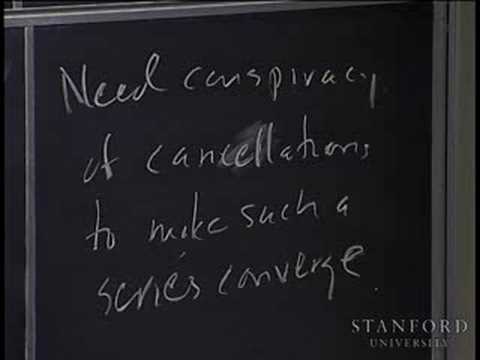 Need conspiracy
of cancellations
to make such a
series converge.
STANFORD
UNIVERSITY